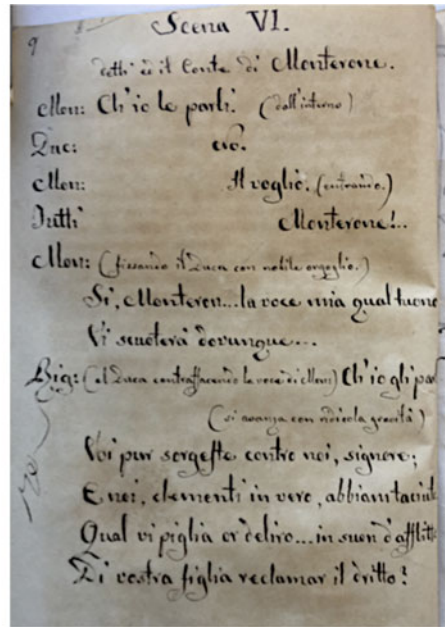 9
Scena VI.
detti ed il Conte di Monterone.
Mon: Ch'io le parli. (dall'interno)
Duc: No.
Mon: Il voglio. (entrando.)
Tutti Monterone!..
Mon: (fissando il Duca con nobile orgoglio.)
Sì, Monteron... la voce mia qual tuono
Vi scuoterà dovunque...
Rig: (al Duca contraffacendo la voce di Mon) Ch'io gli parl
(si avanza con ridicola gravità)
Voi pur sorgeste contro noi, signore;
E noi, clementi in vero, abbiam taciuto
Qual vi piglia or deliro... in suon d'afflitto
Di vostra figlia reclamar il dritto?